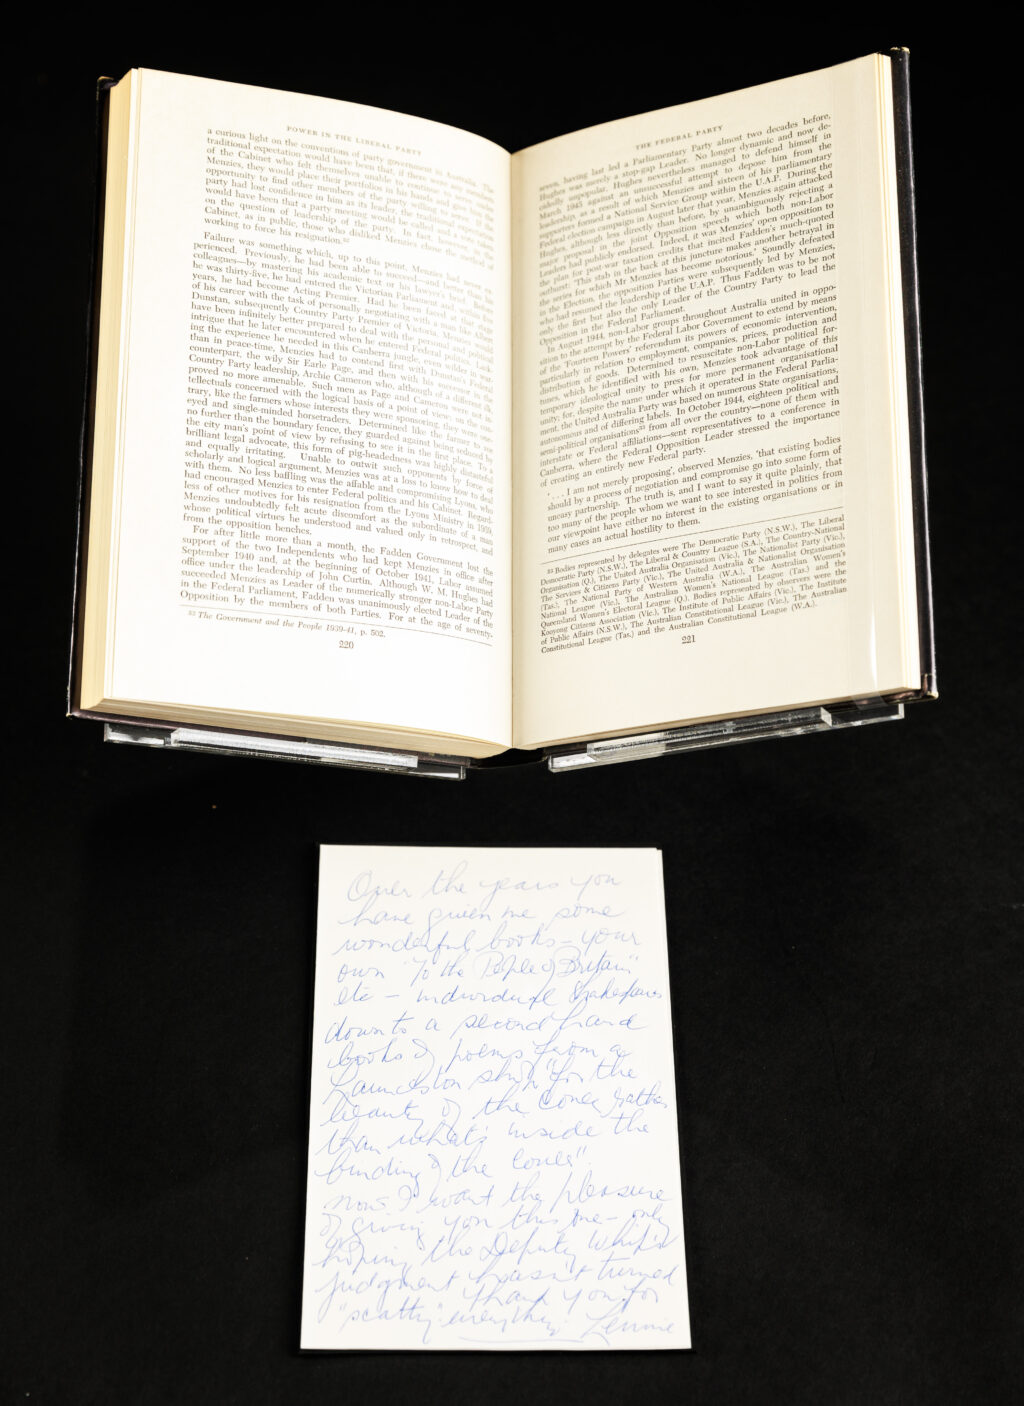 POWER IN THE LIBERAL PARTY
a curious light on the conventions of party government in Australia. The
traditional expectation would have been that, if there were any members
of the Cabinet who felt themselves unable to continue to serve under
Menzies, they would place their portfolios in his hands and give him the
opportunity to find other members of the party willing to serve. If the
party had lost confidence in him as its leader, the traditional expectation
would have been that a party meeting would be called and a vote taken
on the question of leadership of the party. In fact, however, in the
Cabinet, as in public, those who disliked Menzies chose the method of
working to force his resignation.⁵²
Failure was something which, up to this point, Menzies had never ex-
perienced. Previously, he had been able to succeed—and better than his
colleagues—by mastering his academic text or his lawyer's brief. Before
he was thirty-five, he had entered the Victorian Parliament and, within four
years, he had become Acting Premier. Had he been faced at that stage
of his career with the task of personally negotiating with a man like Albert
Dunstan, subsequently Country Party Premier of Victoria, Menzies would
have been infinitely better prepared to deal with the personal and political
intrigue that he later encountered when he entered Federal politics. Lack-
ing the experience he needed in this Canberra jungle, even wilder in war,
than in peace-time, Menzies had to contend first with Dunstan's Federal
counterpart, the wily Sir Earle Page, and then with his successor in the
Country Party leadership, Archie Cameron who, although of a different ilk,
proved no more amenable. Such men as Page and Cameron were not in-
tellectuals concerned with the logical basis of a point of view; on the con-
trary, like the farmers whose interests they were sponsoring, they were one-
eyed and single-minded horsetraders. Determined like the farmer to see
no further than the boundary fence, they guarded against being seduced by
the city man's point of view by refusing to see it in the first place. To a
brilliant legal advocate, this form of pig-headedness was highly distasteful
and equally irritating. Unable to outwit such opponents by force of
scholarly and logical argument, Menzies was at a loss to know how to deal
with them. No less baffling was the affable and compromising Lyons, who
had encouraged Menzies to enter Federal politics and his Cabinet. Regard-
less of other motives for his resignation from the Lyons Ministry in 1939,
Menzies undoubtedly felt acute discomfort as the subordinate of a man
whose political virtues he understood and valued only in retrospect, and
from the opposition benches.
For after little more than a month, the Fadden Government lost the
support of the two Independents who had kept Menzies in office after
September 1940 and, at the beginning of October 1941, Labor assumed
office under the leadership of John Curtin. Although W. M. Hughes had
succeeded Menzies as Leader of the numerically stronger non-Labor Party
in the Federal Parliament, Fadden was unanimously elected Leader of the
Opposition by the members of both Parties. For at the age of seventy-
⁵² The Government and the People 1939-41, p. 502.
220
THE FEDERAL PARTY
seven, having last led a Parliamentary Party almost two decades before,
Hughes was merely a stop-gap Leader. No longer dynamic and now de-
cidedly unpopular, Hughes nevertheless managed to defend himself in
March 1943 against an unsuccessful attempt to depose him from the
leadership, as a result of which Menzies and sixteen of his parliamentary
supporters formed a National Service Group within the U.A.P. During the
Federal election campaign in August later that year, Menzies again attacked
Hughes, although less directly than before, by unambiguously rejecting a
major proposal in the joint Opposition speech which both non-Labor
Leaders had publicly endorsed. Indeed, it was Menzies' open opposition to
the plan for post-war taxation credits that incited Fadden's much-quoted
outburst: 'This stab in the back at this juncture makes another betrayal in
the series for which Mr Menzies has become notorious.' Soundly defeated
in the Election, the opposition Parties were subsequently led by Menzies,
who had resumed the leadership of the U.A.P. Thus Fadden was to be not
only the first but also the only Leader of the Country Party to lead the
Opposition in the Federal Parliament.
In August 1944, non-Labor groups throughout Australia united in oppo-
sition to the attempt by the Federal Labor Government to extend by means
of the 'Fourteen Powers' referendum its powers of economic intervention,
particularly in relation to employment, companies, prices, production and
distribution of goods. Determined to resuscitate non-Labor political for-
tunes, which he identified with his own, Menzies took advantage of this
temporary ideological unity to press for more permanent organisational
unity; for, despite the name under which it operated in the Federal Parlia-
ment, the United Australia Party was based on numerous State organisations,
autonomous and of differing labels. In October 1944, eighteen political and
semi-political organisations⁵³ from all over the country—none of them with
interstate or Federal affiliations—sent representatives to a conference in
Canberra, where the Federal Opposition Leader stressed the importance
of creating an entirely new Federal party.
'. . . I am not merely proposing', observed Menzies, 'that existing bodies
should by a process of negotiation and compromise go into some form of
uneasy partnership. The truth is, and I want to say it quite plainly, that
too many of the people whom we want to see interested in politics from
our viewpoint have either no interest in the existing organisations or in
many cases an actual hostility to them.
⁵³ Bodies represented by delegates were The Democratic Party (N.S.W.), The Liberal
Democratic Party (N.S.W.), The Liberal & Country League (S.A.), The Country-National
Organisation (Q.), The United Australia Organisation (Vic.), The Nationalist Party (Vic.),
The Services & Citizens Party (Vic.), The United Australia & Nationalist Organisation
(Tas.), The National Party of Western Australia (W.A.), The Australian Women's
National League (Vic.), The Australian Women's National League (Tas.) and the
Queensland Women's Electoral League (Q.). Bodies represented by observers were the
Kooyong Citizens Association (Vic.), The Institute of Public Affairs (Vic.), The Institute
of Public Affairs (N.S.W.), The Australian Constitutional League (Vic.), The Australian
Constitutional League (Tas.) and the Australian Constitutional League (W.A.).
221
Over the years you
have given me some
wonderful books – your
own "To the People of Britain"
etc – individual Shakespeares
down to a second hand
books of poems from a
Launceston shop "for the
beauty of the cover rather
than what's inside the
binding of the cover".
Now I want the pleasure
of giving you this one – only
hoping the Deputy Whip's
judgment hasn't turned
"scatty" thank you for
everything. Lennie